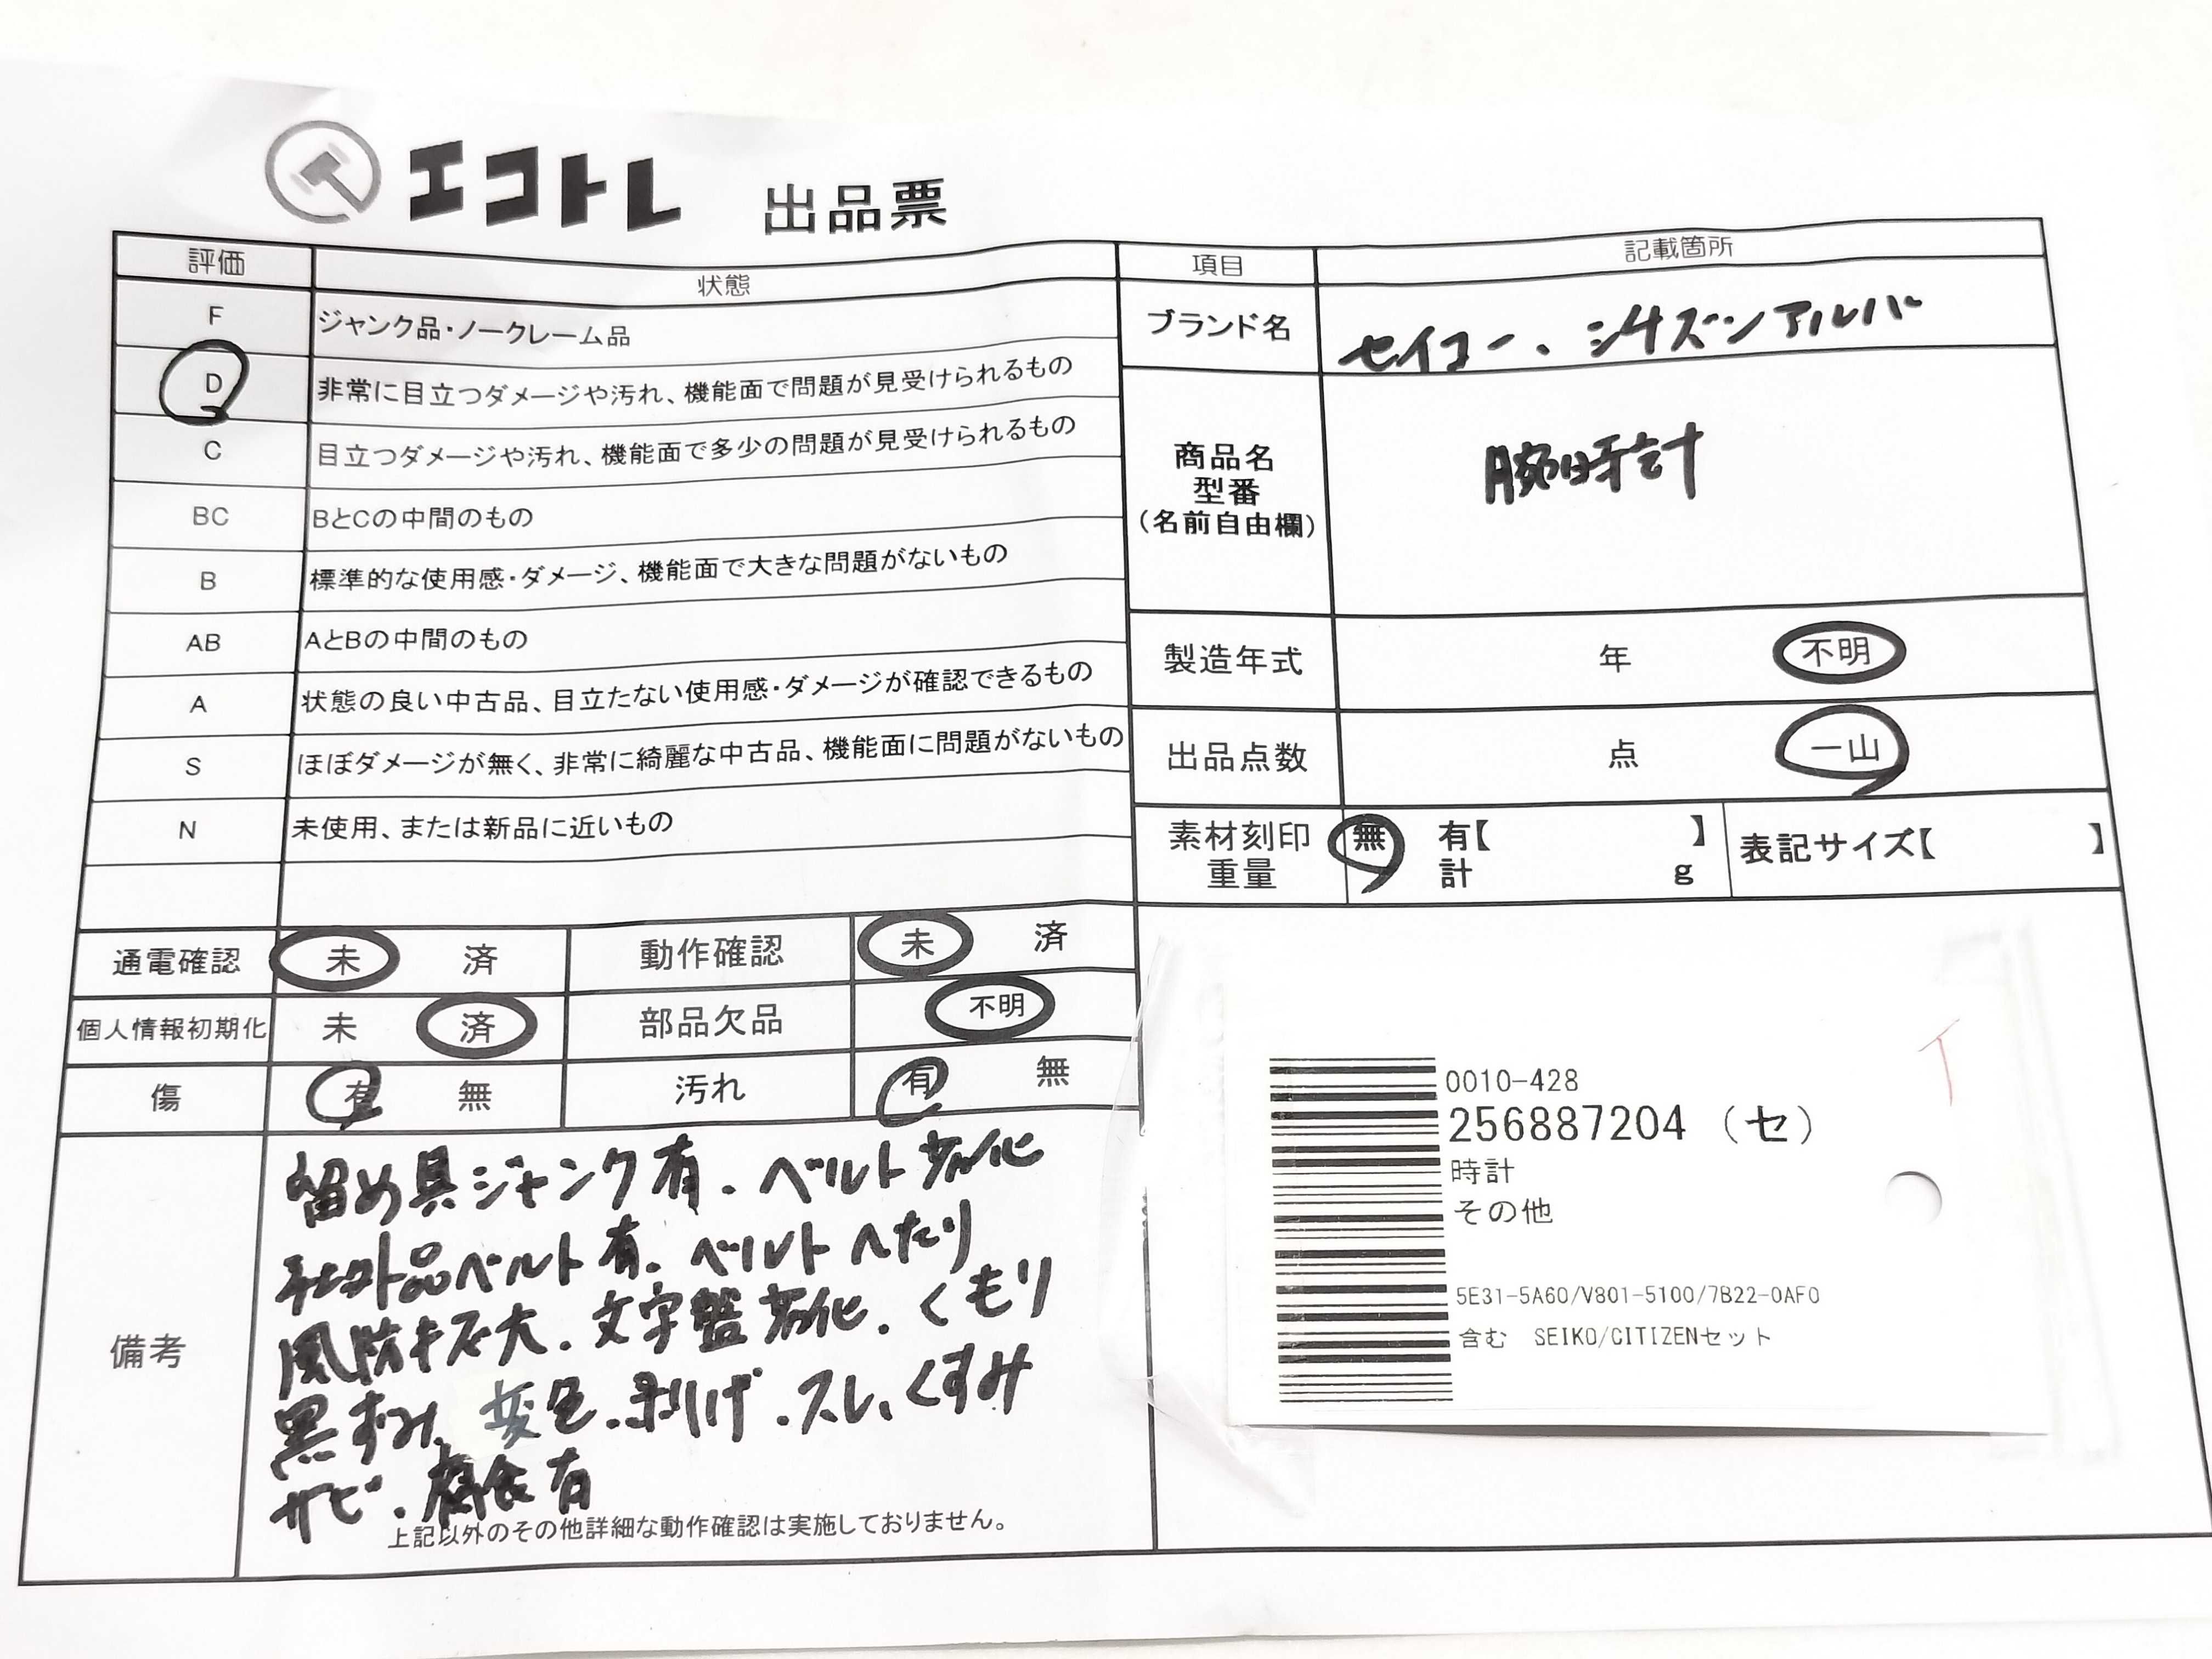 エコトレ 出品票
評価 状態
F ジャンク品・ノークレーム品
D 非常に目立つダメージや汚れ、機能面で問題が見受けられるもの
C 目立つダメージや汚れ、機能面で多少の問題が見受けられるもの
BC BとCの中間のもの
B 標準的な使用感・ダメージ、機能面で大きな問題がないもの
AB AとBの中間のもの
A 状態の良い中古品、目立たない使用感・ダメージが確認できるもの
S ほぼダメージが無く、非常に綺麗な中古品、機能面に問題がないもの
N 未使用、または新品に近いもの
項目 記載箇所
ブランド名 セイコー、シチズンアルバ
商品名
型番
（名前自由欄）
腕時計
製造年式 年 不明
出品点数 点 一山
素材刻印 無 有【 】 表記サイズ【 】
重量 計 g
通電確認 未 済 動作確認 未 済
個人情報初期化 未 済 部品欠品 不明
傷 有 無 汚れ 有 無
備考
留め具ジャンク有、ベルト劣化
社外品ベルト有、ベルトヘたり
風防キズ大、文字盤劣化、くもり
黒ずみ、変色、剥げ、スレ、くすみ
サビ、腐食有
上記以外のその他詳細な動作確認は実施しておりません。
0010-428
256887204（セ）
時計
その他
5E31-5A60/V801-5100/7B22-0AF0
含む SEIKO/CITIZENセット